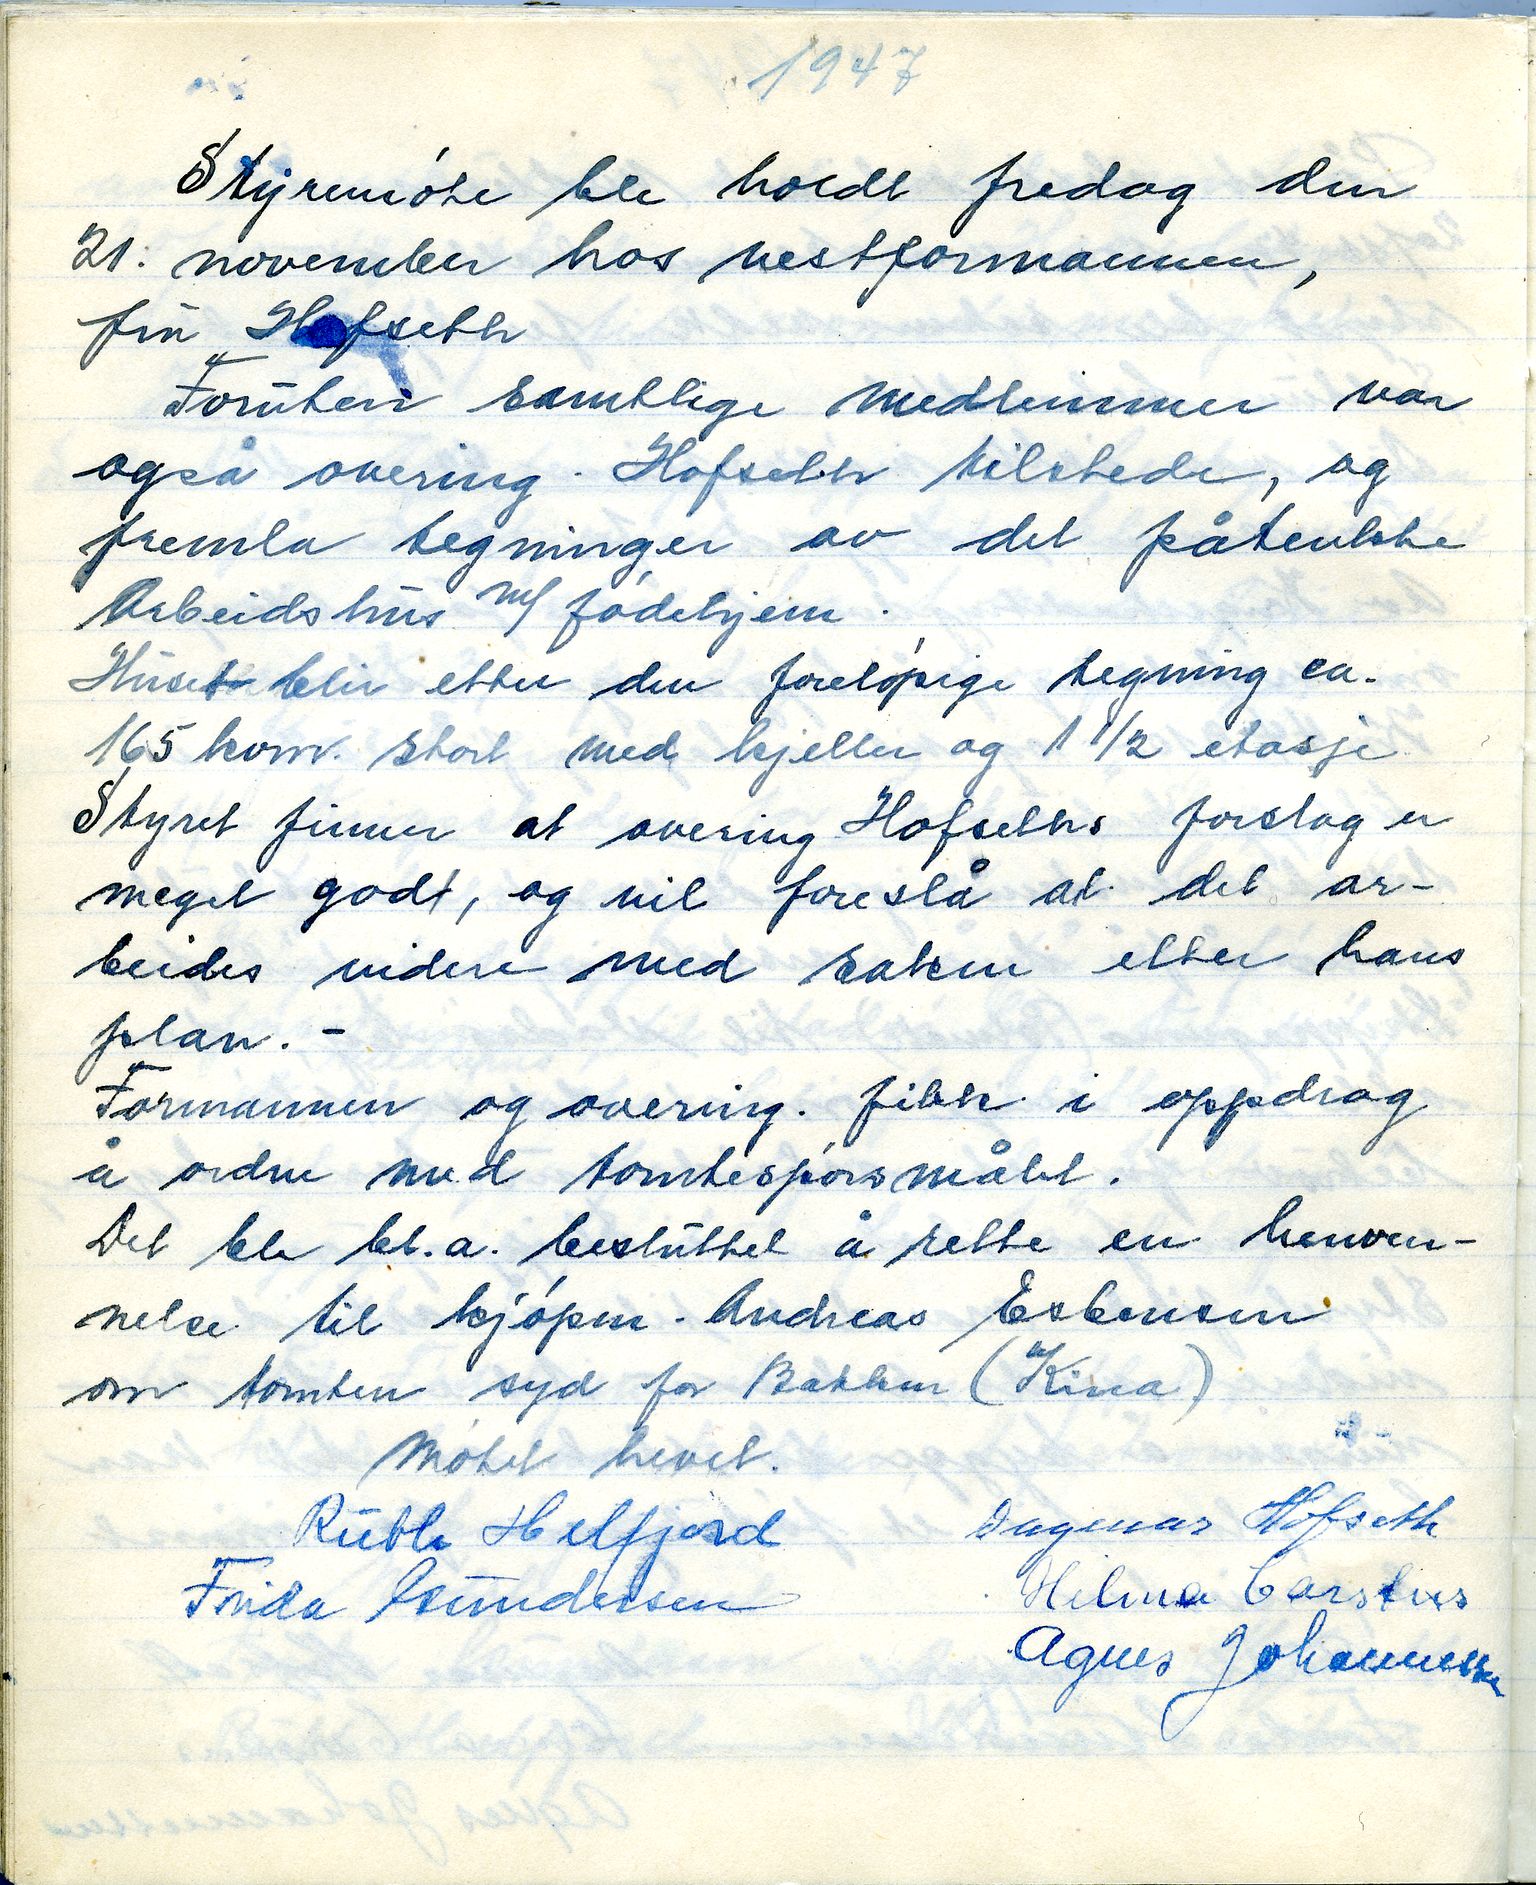 1947
Styremøte ble holdt fredag den
21. november hos nestformannen,
fru Hofseth
Foruten samtlige medlemmer var
også overing. Hofseth tilstede, og
fremla tegninger av det påtenkte
Arbeidshus m/ fødehjem.
Huset blir etter den foreløpige tegning ca.
165 kvm. stort med kjeller og 1 1/2 etasje
Styret finner at overing Hofseths forslag er
meget godt, og vil foreslå at det ar-
beides videre med saken etter hans
plan. -
Formannen og overing. fikk i oppdrag
å ordne med tomtespørsmålet.
Det ble bl.a. besluttet å rette en henven-
nelse til kjøpm. Andreas Esbensen
om tomten syd for Bakken ("Kina)
Møtet hevet.
Ruth Helfjord Dagmar Hofseth
Frida Gundersen Hilma Carstens
Agnes Johannessen